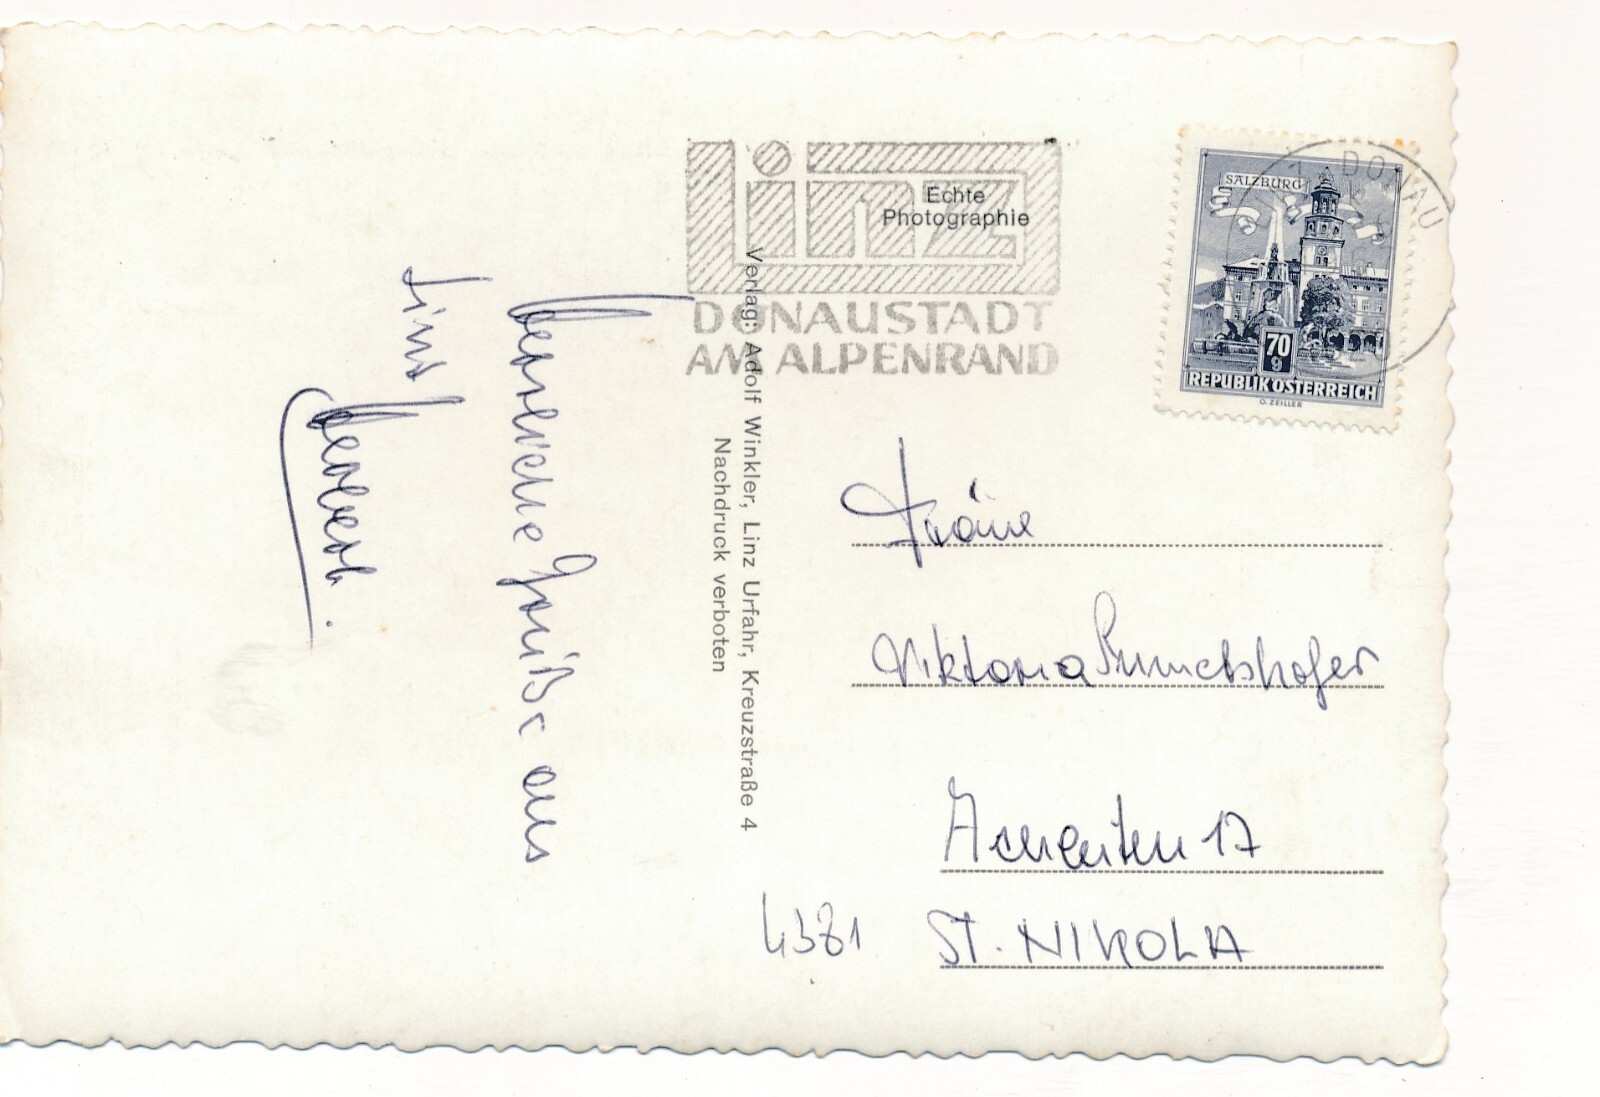 Linz
DONAUSTADT
AM ALPENRAND
Echte
Photographie
DONAU
SALZBURG
70
g
REPUBLIK ÖSTERREICH
O. ZEILLER
Verlag: Adolf Winkler, Linz Urfahr, Kreuzstraße 4
Nachdruck verboten
Grüße aus
Linz
Herbert.
Viktoria
17
4381 ST. NIKOLA